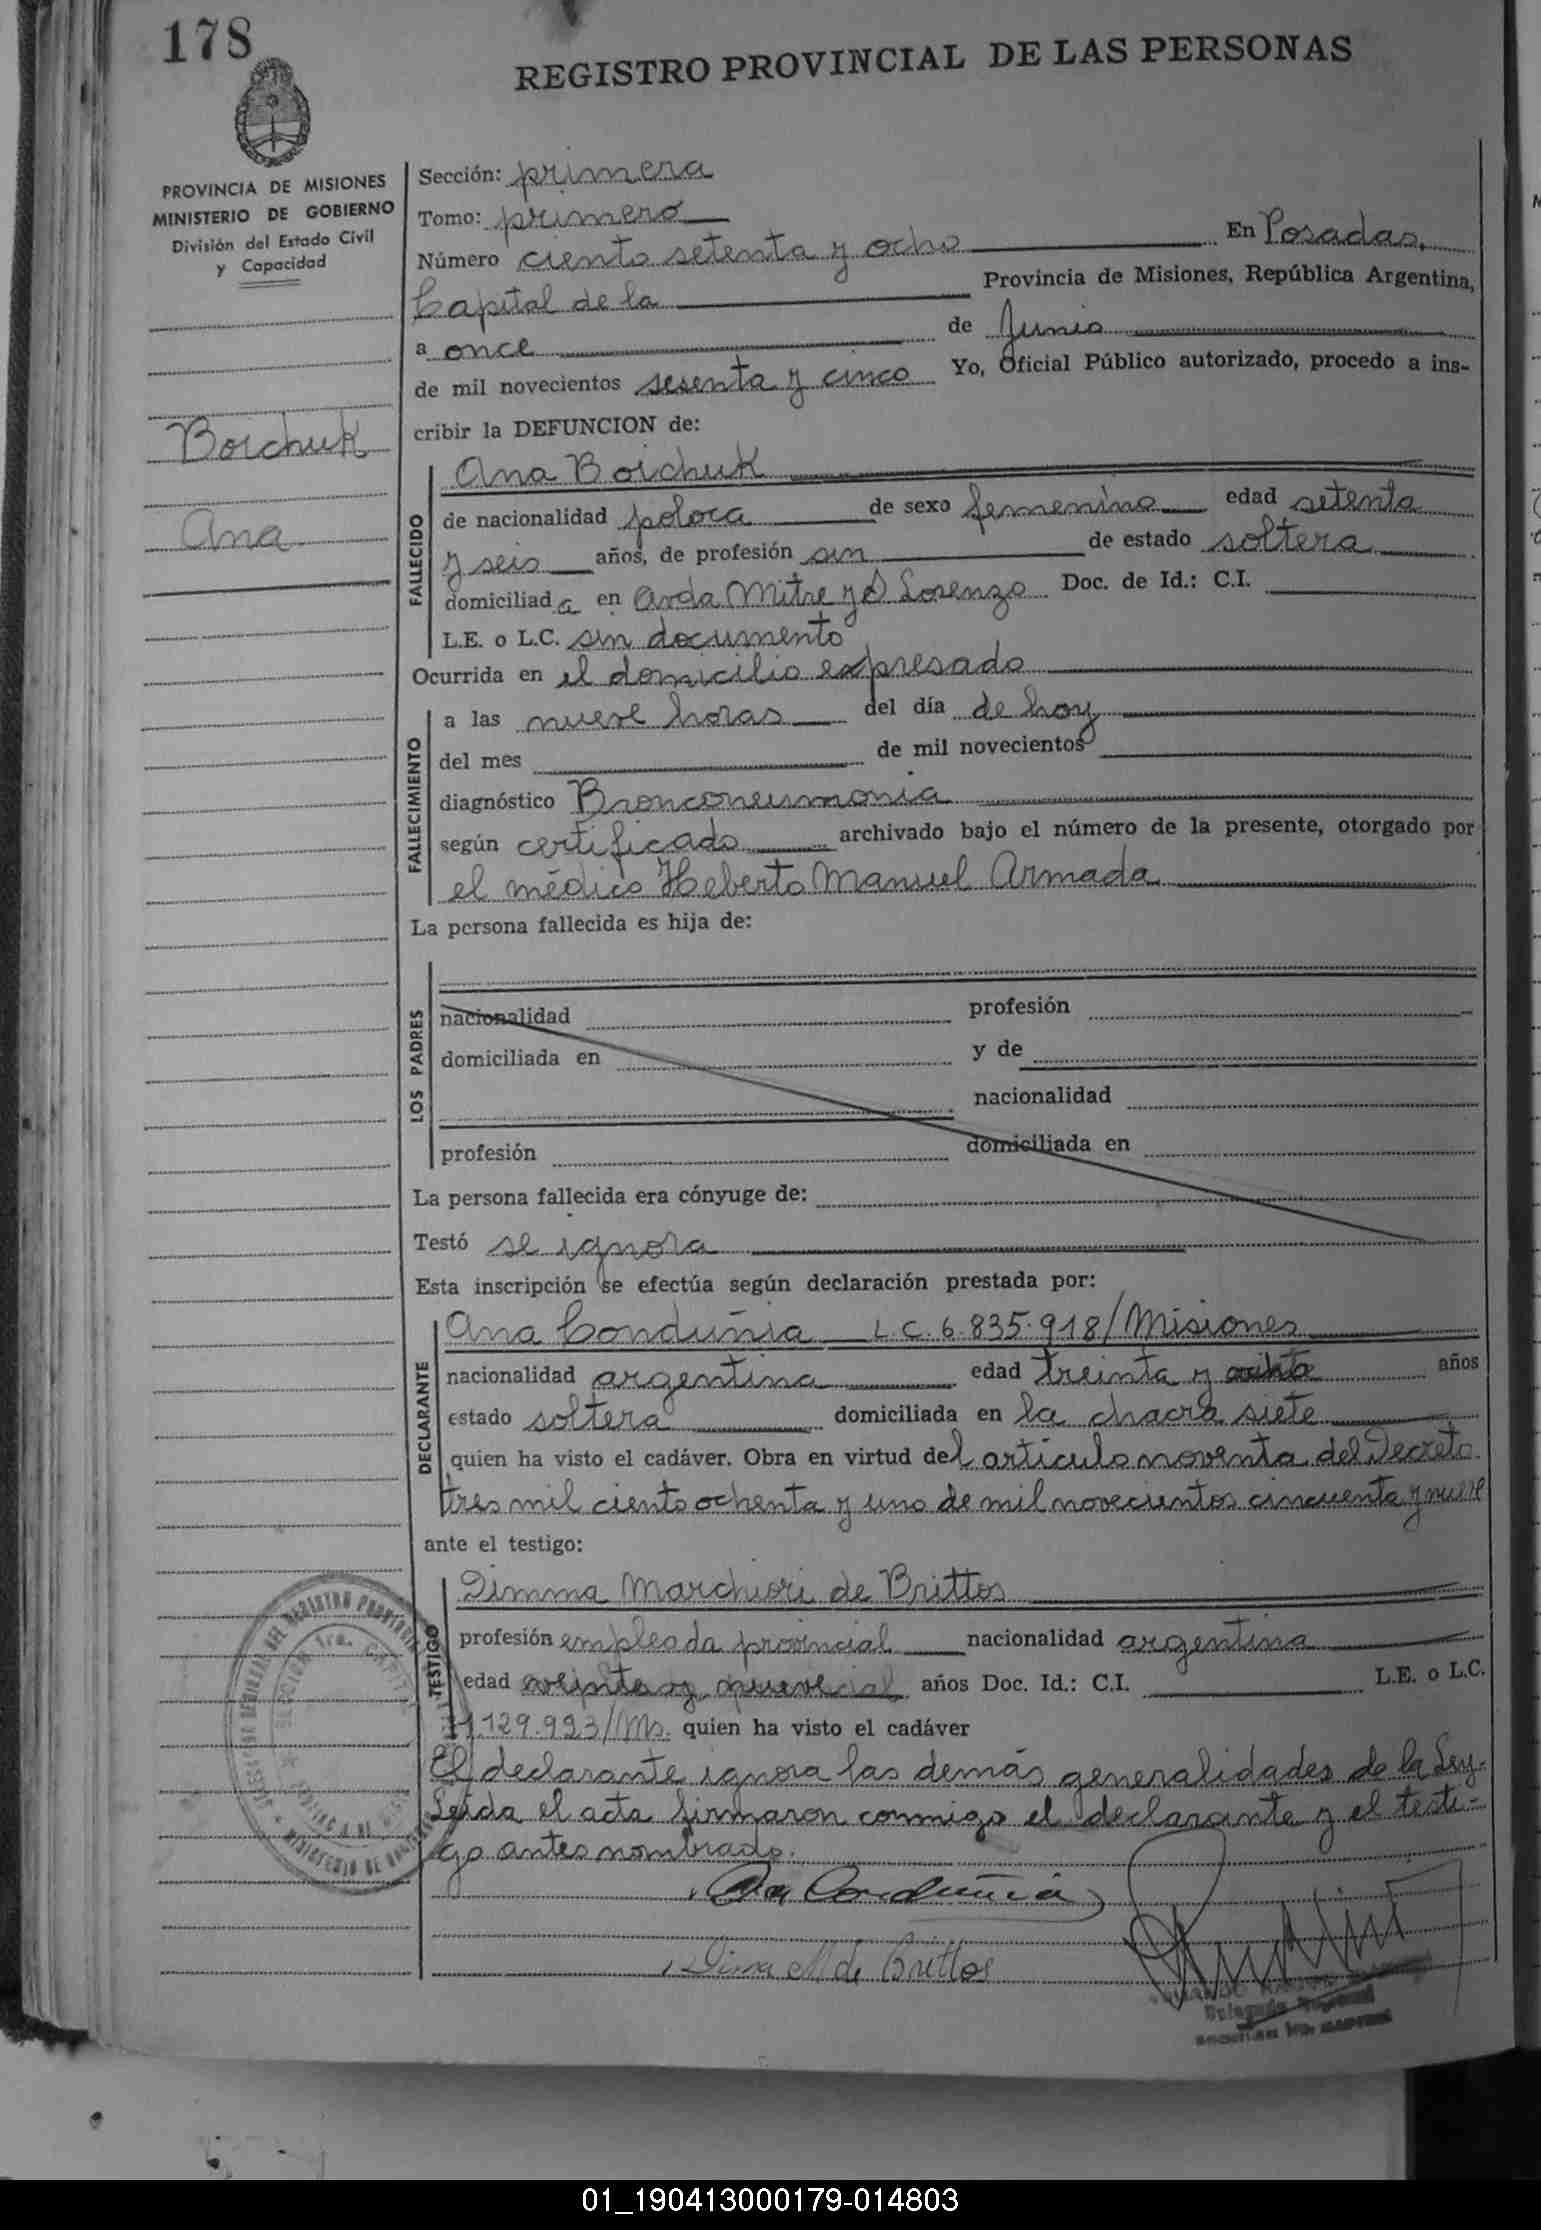 178
REGISTRO PROVINCIAL DE LAS PERSONAS
PROVINCIA DE MISIONES
MINISTERIO DE GOBIERNO
División del Estado Civil
y Capacidad
Boichuk
Ana
Sección: primera
Tomo: primero
Número ciento setenta y ocho En Posadas,
Capital de la Provincia de Misiones, República Argentina,
a once de Junio
de mil novecientos sesenta y cinco Yo, Oficial Público autorizado, procedo a ins-
cribir la DEFUNCION de:
FALLECIDO
Ana Boichuk
de nacionalidad polaca de sexo femenino edad setenta
y seis años, de profesión sin de estado soltera
domiciliada en Avda Mitre y S Lorenzo Doc. de Id.: C.I.
L.E. o L.C. sin documento
Ocurrida en el domicilio expresado
FALLECIMIENTO
a las nueve horas del día de hoy
del mes de mil novecientos
diagnóstico Bronconeumonia
según certificado archivado bajo el número de la presente, otorgado por
el médico Heberto Manuel Armada
La persona fallecida es hija de:
LOS PADRES
nacionalidad profesión
domiciliada en y de
nacionalidad
profesión domiciliada en
La persona fallecida era cónyuge de:
Testó se ignora
Esta inscripción se efectúa según declaración prestada por:
DECLARANTE
Ana Conduñia L.C. 6.835.918/Misiones
nacionalidad argentina edad treinta y años
estado soltera domiciliada en la chacra siete
quien ha visto el cadáver. Obra en virtud del articulo noventa del Decreto
tres mil ciento ochenta y uno de mil novecientos cincuenta y nueve
ante el testigo:
TESTIGO
Dimma Marchiori de Brittos
profesión empleada provincial nacionalidad argentina
edad y nueve años Doc. Id.: C.I. L.E. o L.C.
1.129.993/Ms. quien ha visto el cadáver
El declarante ignora las demás generalidades de la Ley.
Leida el acta firmaron conmigo el declarante y el testi-
go antes nombrado.
Ana Conduñia
Dima M de Brittos
01_190413000179-014803